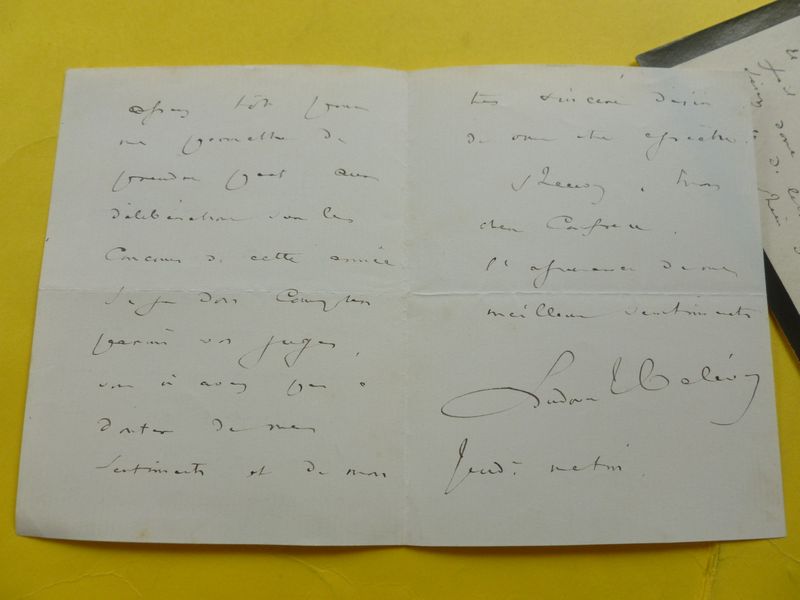 assez tôt pour
me permettre de
prendre part aux
délibérations sur les
Concours de cette année
Si je dois Compter
parmi vos juges,
vous n'avez pas à
douter de mes
Sentiments et de mon
très sincère désir
de vous être
Recevez, mon
cher Confrère,
l'assurance de mes
meilleurs sentiments
Ludovic Halévy
Jeudi matin.